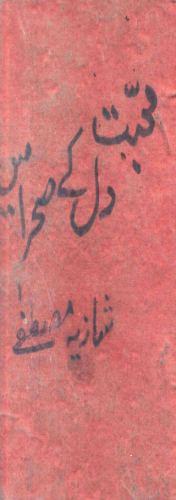 محبّت
دل کے صحرا میں
شازیہ مصطفٰے